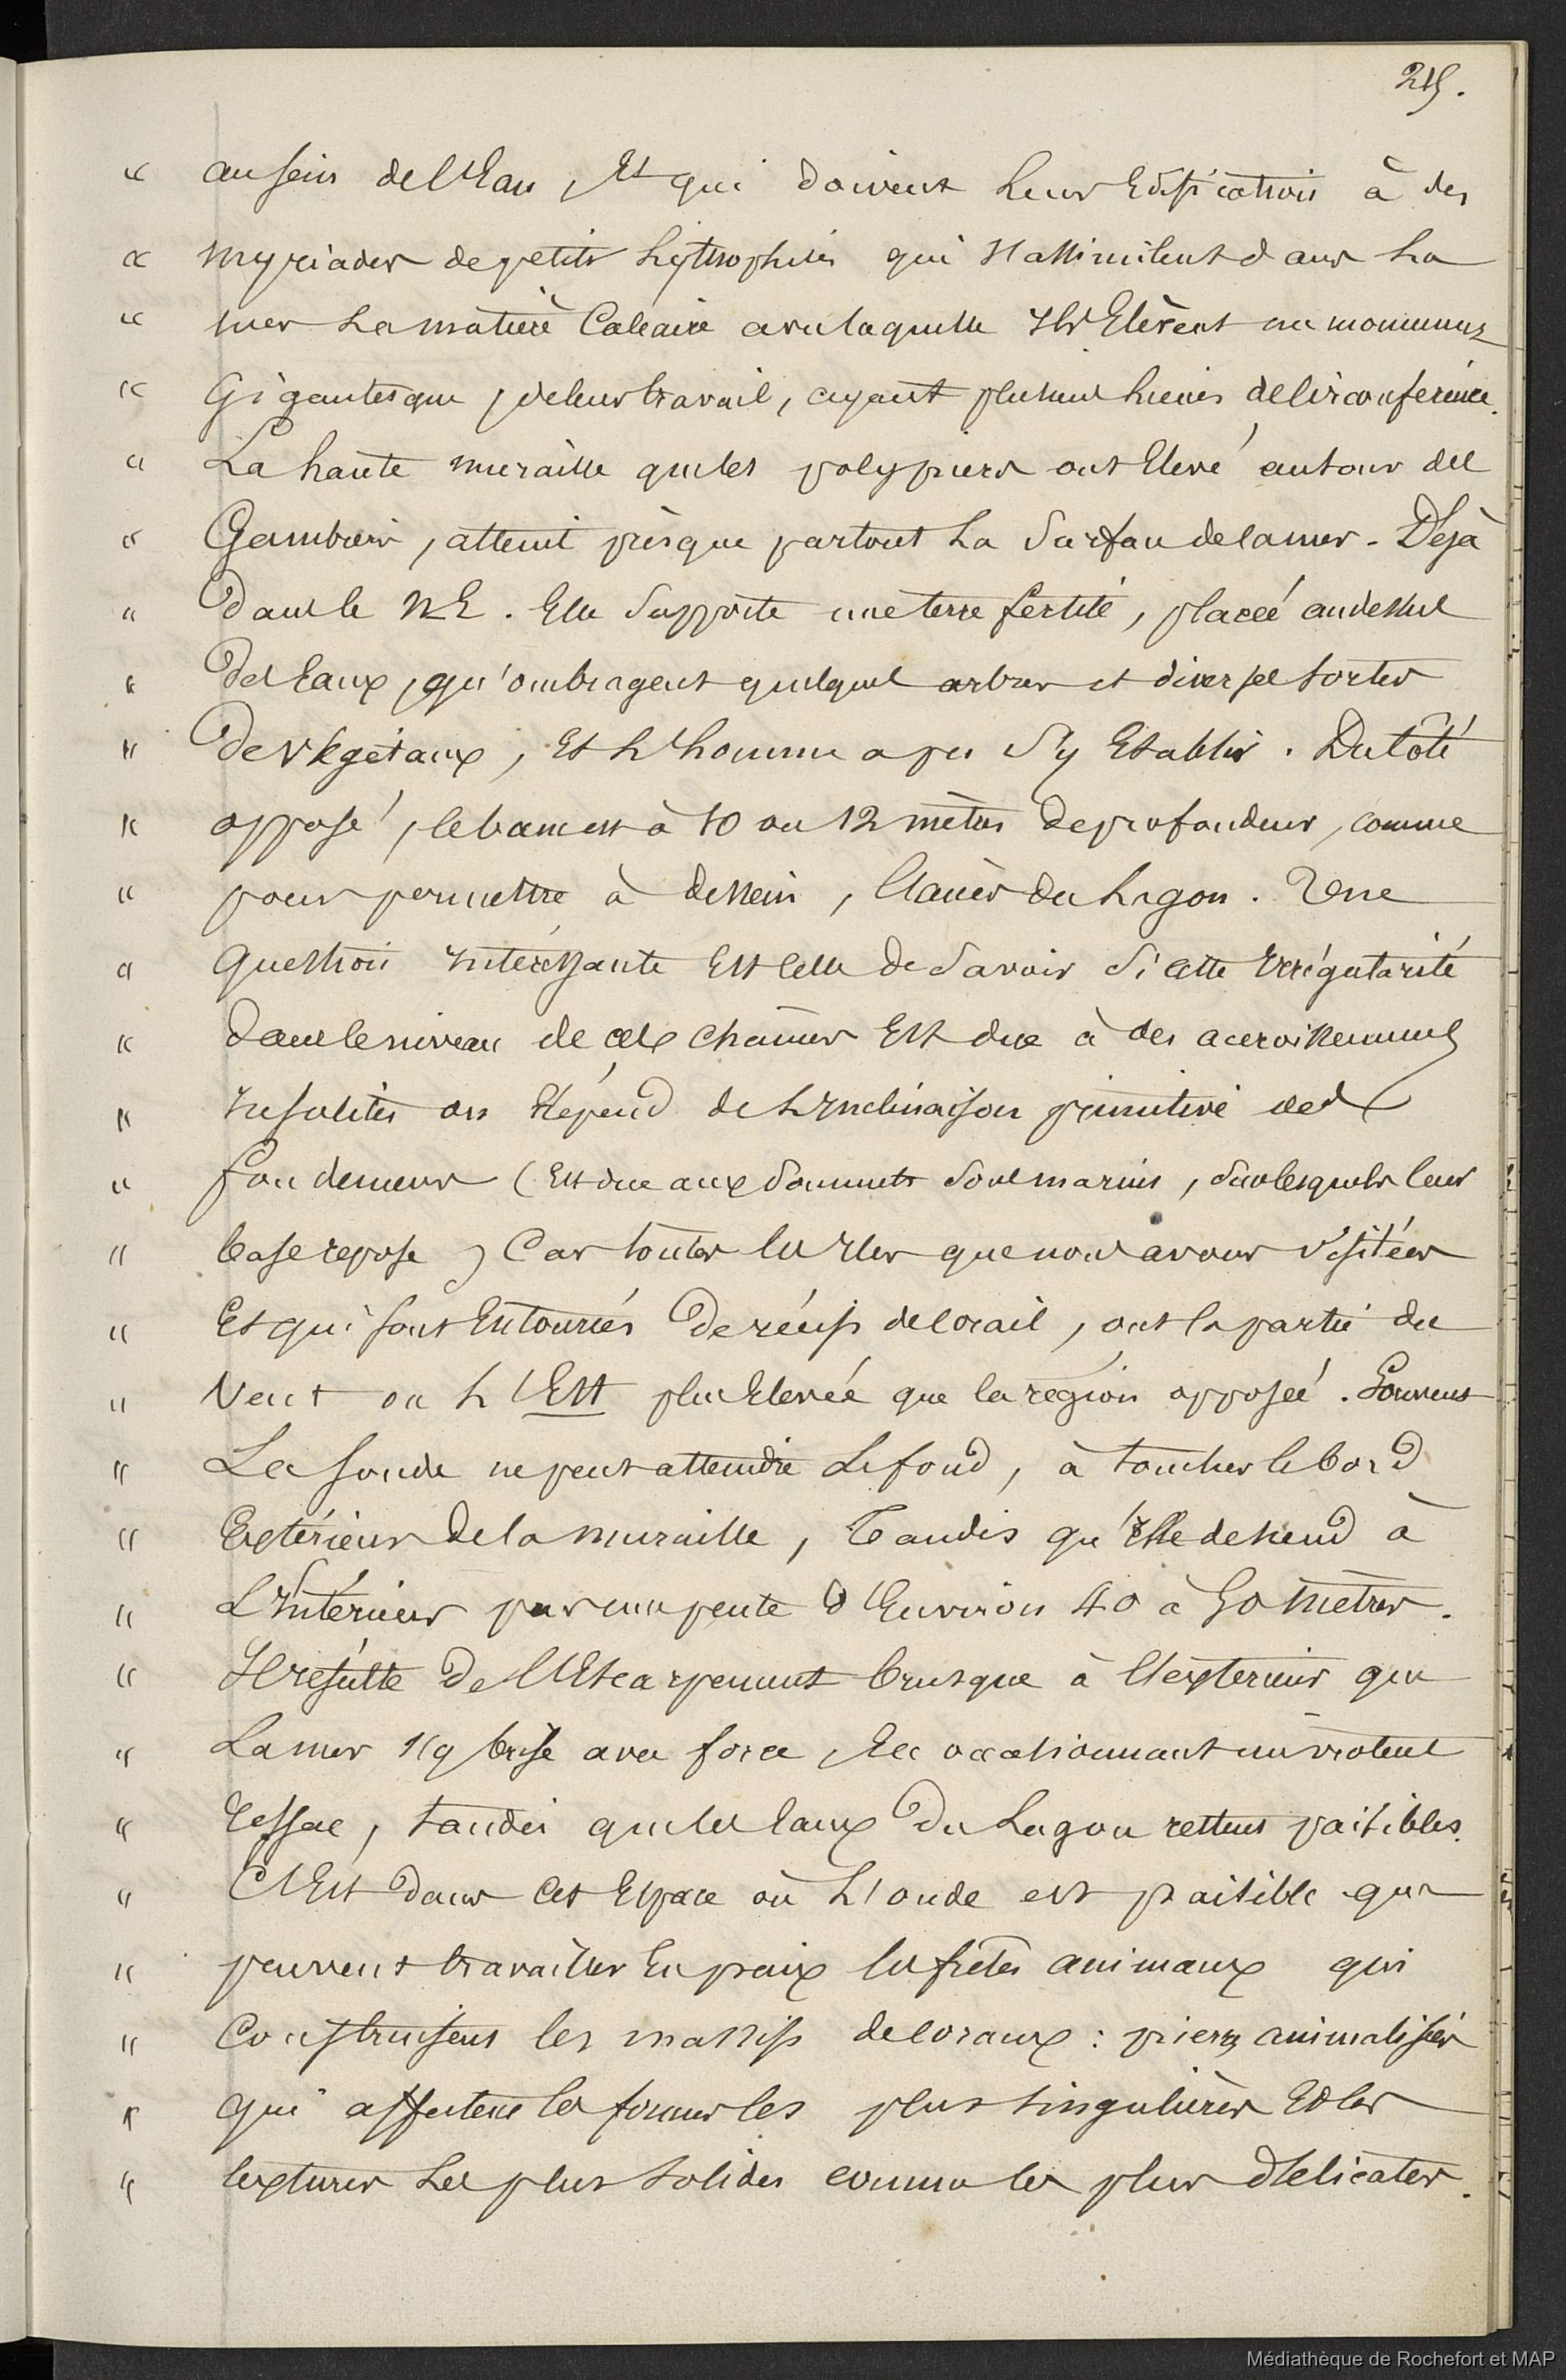 215.
" au sein de l'Eau, Et qui doivent Leur Edification à des
" myriades de petits Lythophites qui s'assimilent dans La
" mer La matière Calcaire avec laquelle Ils Elèvent un monument
" Gigantesque, de leur travail, ayant plusieurs Lieues de Circonférence.
" La haute muraille que les polypiers ont Elevé autour des
" Gambier, atteint presque partout La Surface de la mer - Déjà
" Dans le NE. Elle Supporte une terre fertile, placée au dessus
" Des Eaux, qu'ombragent quelques arbres et diverses sortes
" De Végétaux, Et L'homme a pu S'y Etablir. Du Coté
" opposé, le banc est à 10 ou 12 mètres De profondeur, comme
" pour permettre à dessein, l'accès du Lagon. Une
" Question Intéressante Est Celle de Savoir Si Cette Irrégularité
" Dans le niveau de ces chaînes Est due à des accroissemens
" Insolites ou Dépend de L'Inclinaison primitive des
" fondemens (Est due aux Sommets Sous marins, Sur lesquels leur
" base repose) Car toutes les Iles que nous avons visitées
" Et qui sont Entourées De récifs de Corail, ont la partie du
" Vent ou L'Est plus Elevée que la région opposée. Souvent
" La Sonde ne peut atteindre Le fond, à toucher le bord
" Extérieur de la muraille, Tandis qu'Elle descend à
" L'Intérieur par une pente d'Environ 40 à 50 mètres.
" Il résulte De l'Escarpement brusque à l'extérieur que
" La mer s'y brise avec force, En occasionnant un violent
" ressac, tandis que les Eaux Du Lagon restent paisibles.
" C'Est Dans Cet Espace où L'onde est paisible que
" peuvent travailler En paix les frêles animaux qui
" Construisent les massifs de Coraux : pierres animalisées
" qui affectent les formes les plus singulières Et les
" textures Les plus Solides comme les plus délicates.
Médiathèque de Rochefort et MAP